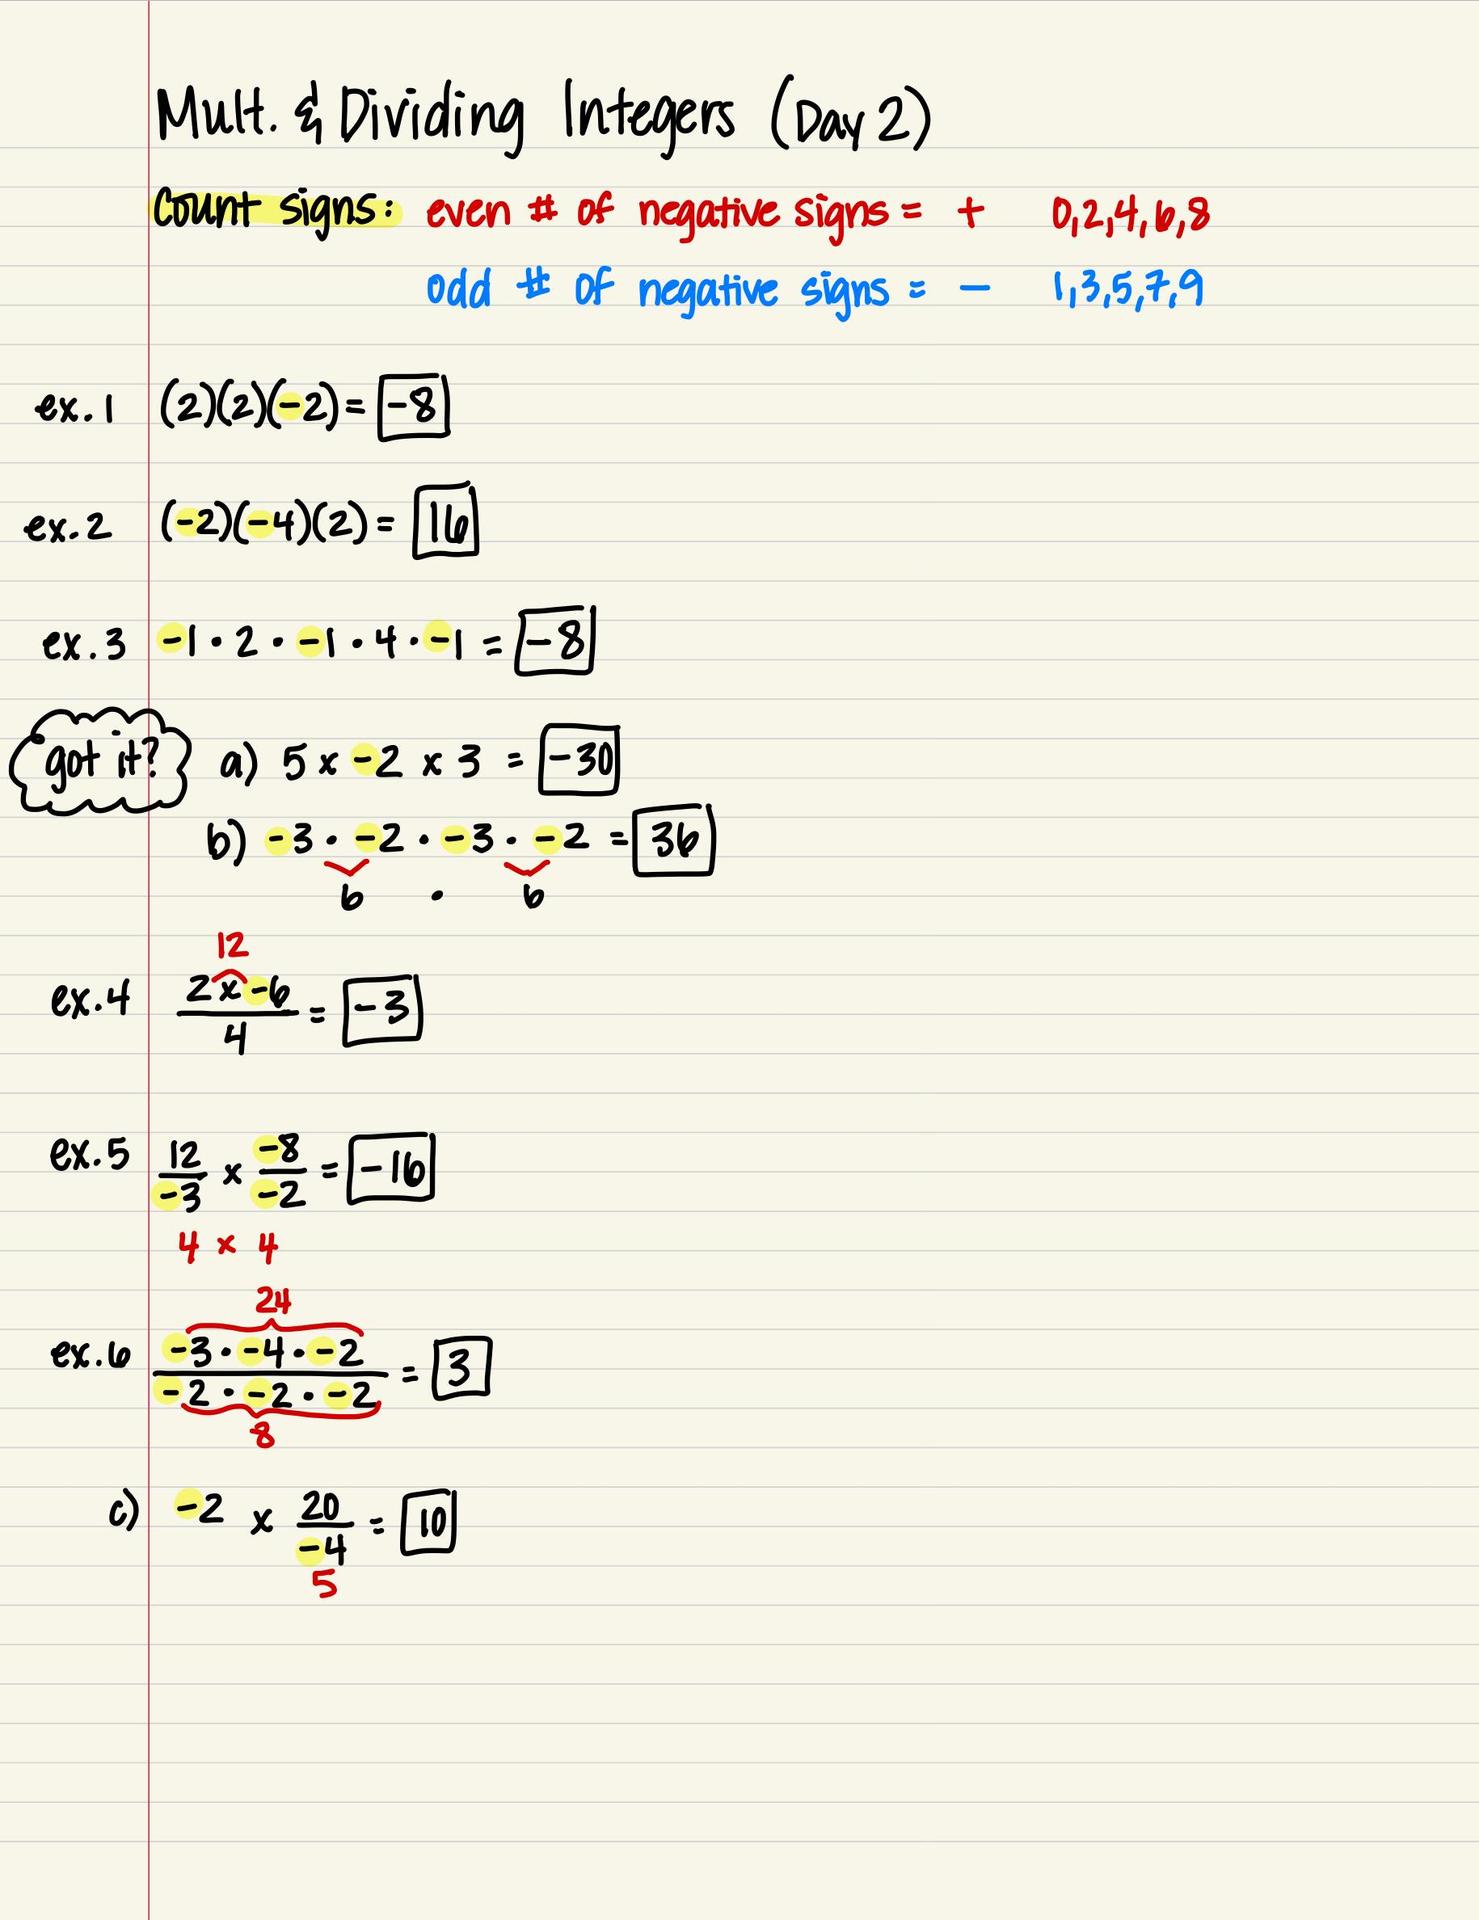 Mult. & Dividing Integers (Day 2)
Count signs: even # of negative signs = + 0,2,4,6,8
odd # of negative signs = − 1,3,5,7,9
ex.1 (2)(2)(-2) = -8
ex.2 (-2)(-4)(2) = 16
ex.3 -1 · 2 · -1 · 4 · -1 = -8
got it? a) 5 x -2 x 3 = -30
b) -3 · -2 · -3 · -2 = 36
6 · 6
12
ex.4 2 x -6 = -3
4
ex.5 12 x -8 = -16
-3 -2
4 x 4
24
ex.6 -3 · -4 · -2 = 3
-2 · -2 · -2
8
c) -2 x 20 = 10
-4
5